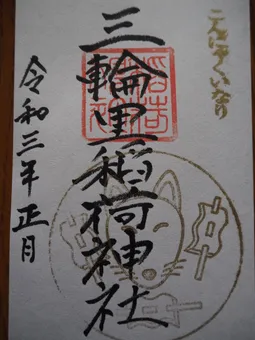 こんにゃくいなり
三輪里稲荷神社
令和三年正月